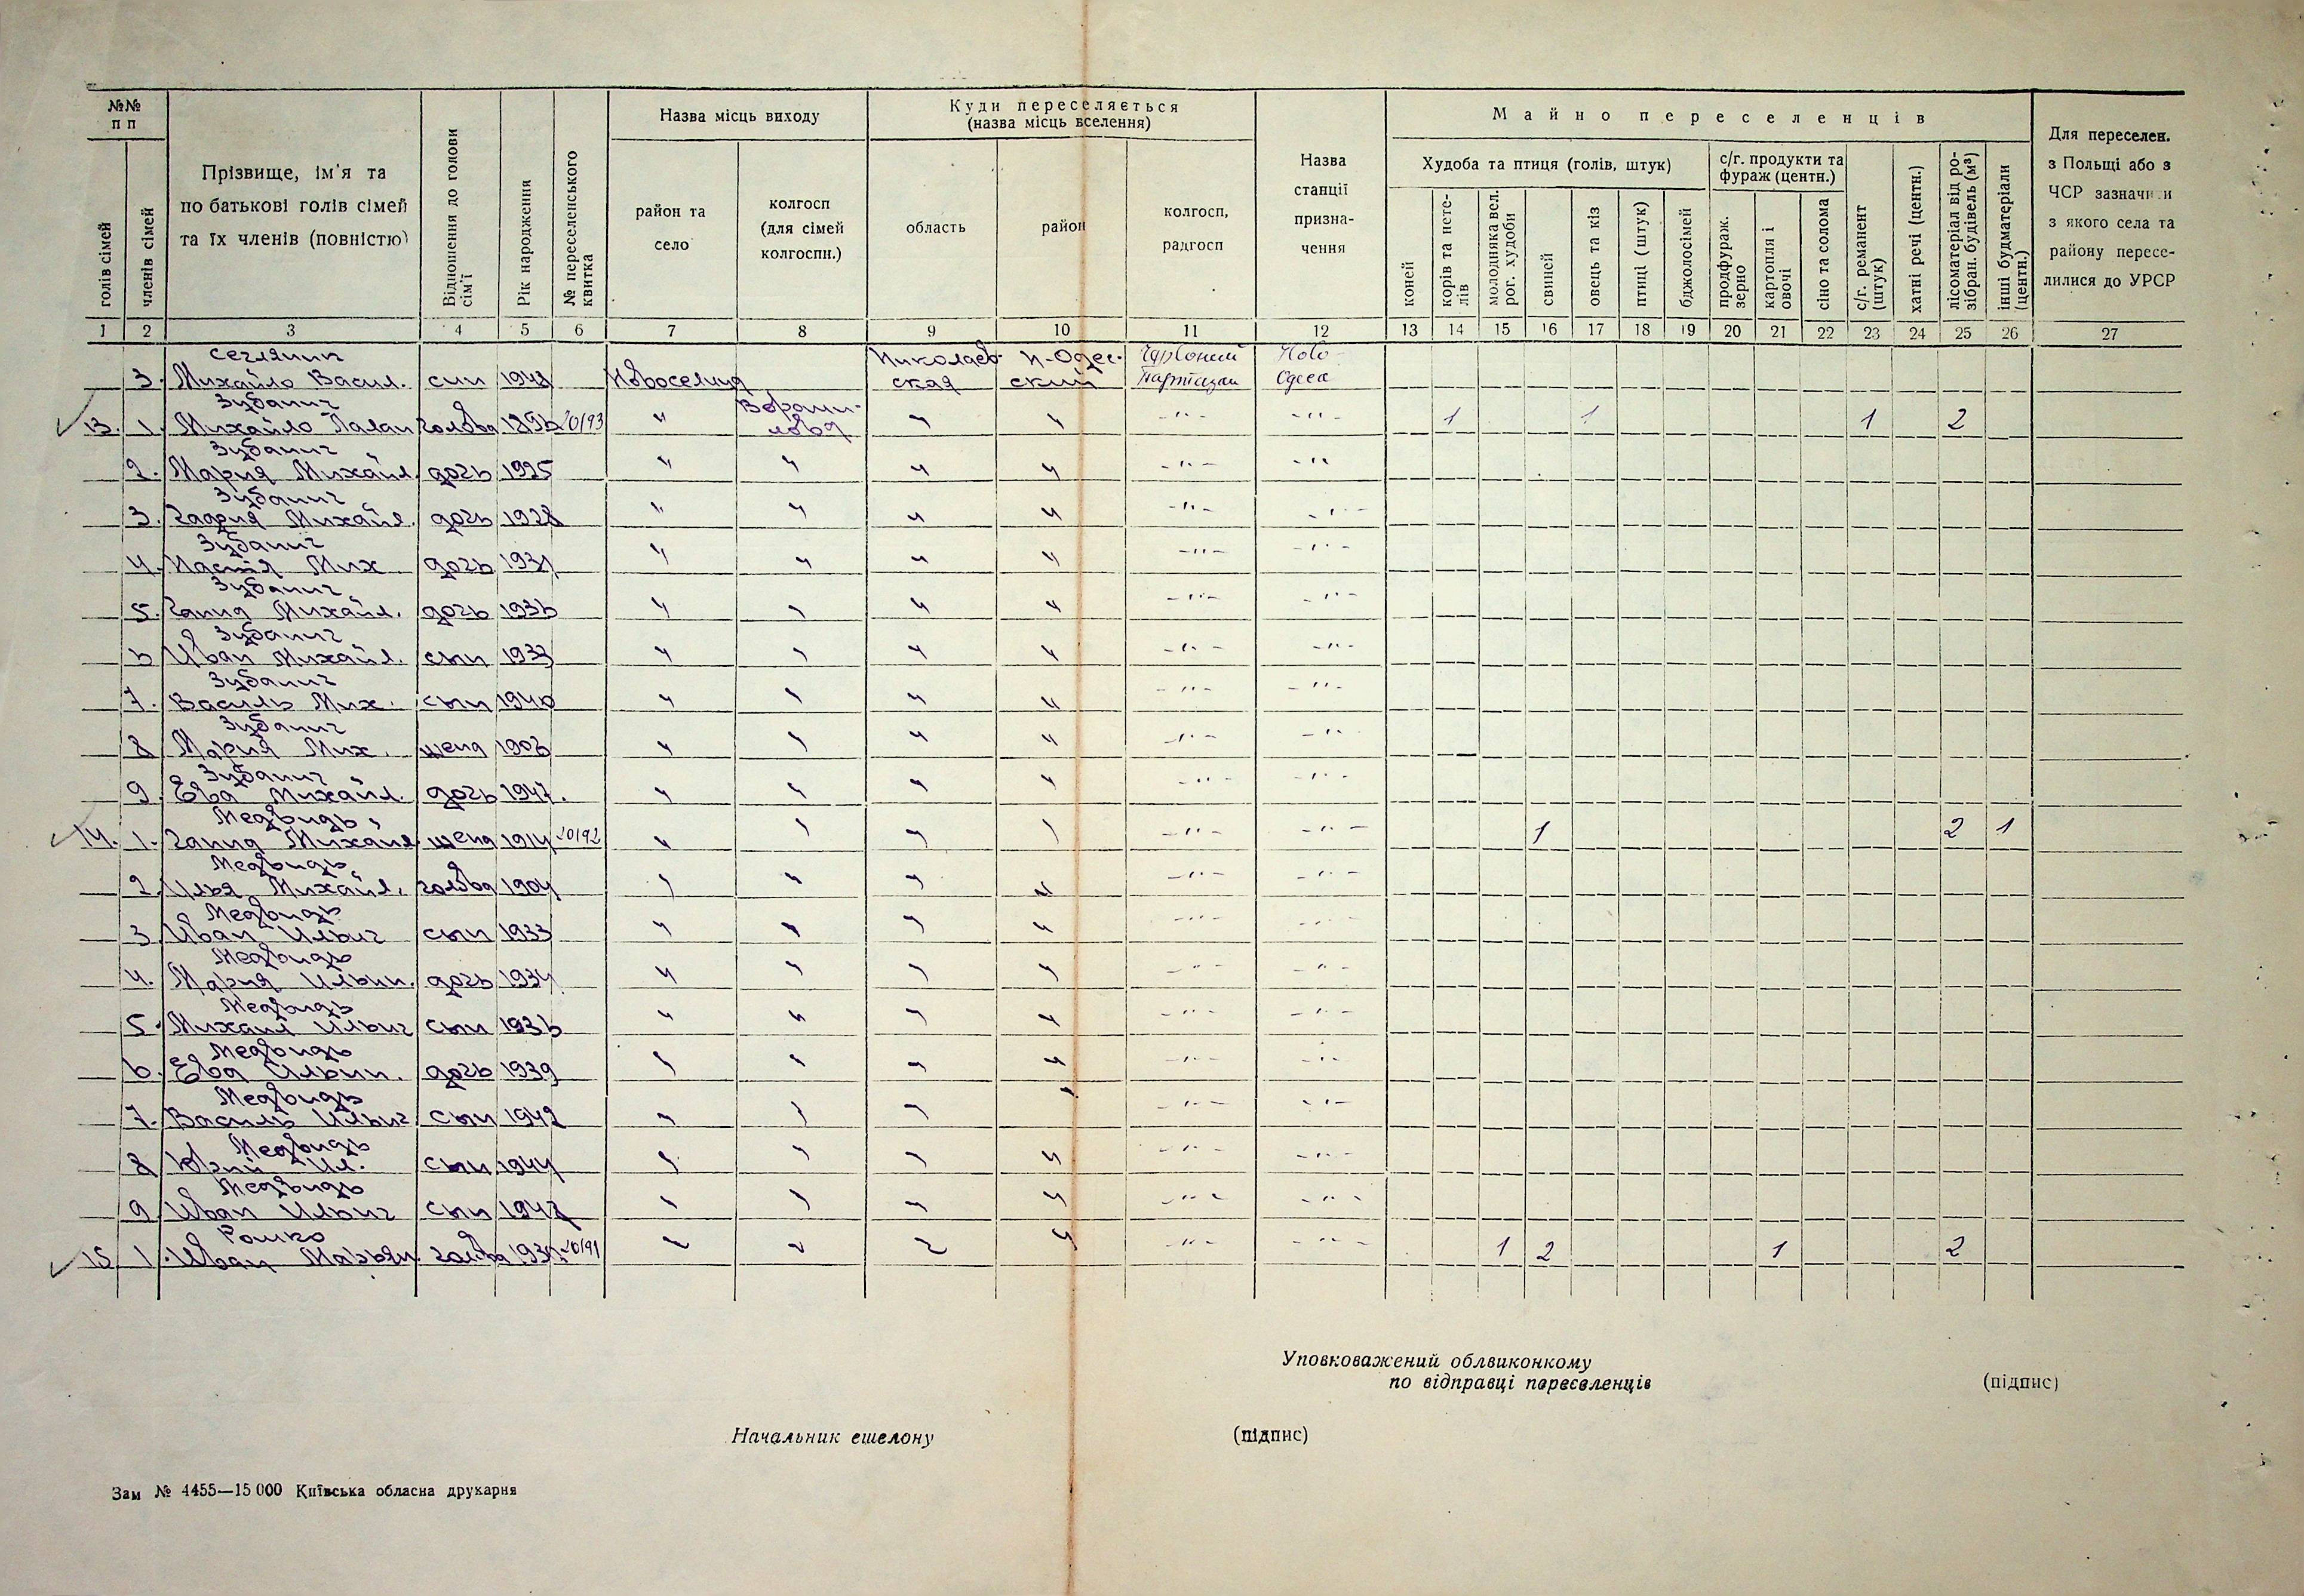 №№ п п
Прізвище, ім'я та по батькові голів сімей та їх членів (повністю)
Відношення до голови сім'ї
Рік народження
№ переселенського квитка
Назва місць виходу
Куди переселяється (назва місць вселення)
Назва станції призначення
Майно переселенців
Для переселен. з Польщі або з ЧСР зазначи и з якого села та району пересе-лилися до УРСР
голів сімей
членів сімей
район та село
колгосп (для сімей колгоспн.)
область
район
колгосп, радгосп
Худоба та птиця (голів, штук)
с/г. продукти та фураж (центн.)
с/г. реманент (штук)
хатні речі (центн.)
лісоматеріал від ро-зібран. будівель (м³)
інші будматеріали (центн.)
коней
корів та нете-лів
молодняка вел. рог. худоби
свиней
овець та кіз
птиці (штук)
бджолосімей
продфураж. зерно
картопля і овочі
сіно та солома
1 2 3 4 5 6 7 8 9 10 11 12 13 14 15 16 17 18 19 20 21 22 23 24 25 26 27
Николаев- Н-Одес. Червоний Ново-
3. Михайло Васил. син 1948 Новоселица ская ский Партизан Одеса
Зубанич Вороши-
13. 1. Михайло 20193 " лова " " -"- -"- 1 1 1 2
Зубанич
2. Мария Михайл. дочь 1925 " " " " -"- -"
Зубанич
3. Михайл. дочь 1928 " " " " -"- -"-
Зубанич
4. Настя Мих дочь 1931 " " " " -"- -"-
Зубанич
5. Ганна Михайл. дочь 1936 " " " " -"- -"-
Зубанич
6 Иван Михайл. сын 1933 " " " " -"- -"-
Зубанич
7. Василь Мих. сын 1940 " " " " -"- -"-
Зубанич
8 Мария Мих. жена 1903 " " " " -"- -"-
Зубанич
9 Ева Михайл. дочь 1947. " " " " -"- -"-
Медвидь
14. 1. Ганна Михайл жена 1914 20192 " " " " -"- -"- 1 2 1
Медвидь
2 Илья Михайл. голова 1904 " " " " -"- -"-
Медвидь
3 Иван Ильич сын 1933 " " " " -"- -"-
Медвидь
4. Мария Ильин. дочь 1934 " " " " -"- -"-
Медвидь
5. Михаил Ильич сын 1936 " " " " -"- -"-
Медвидь
6. Ева Ильин. дочь 1939 " " " " -"- -"-
Медвидь
7. Василь Ильич сын 1942 " " " " -"- -"-
Медвидь
8 Юрий Ил. сын 1944 " " " " -"- -"-
Медвидь
9 Иван Ильич сын " " " " -"- -"-
Ромко
15 1. Иван голова 20191 " " " " -"- -"- 1 2 1 2
Уповноважений облвиконкому
по відправці переселенців (підпис)
Начальник ешелону (підпис)
Зам № 4455—15 000 Київська обласна друкарня